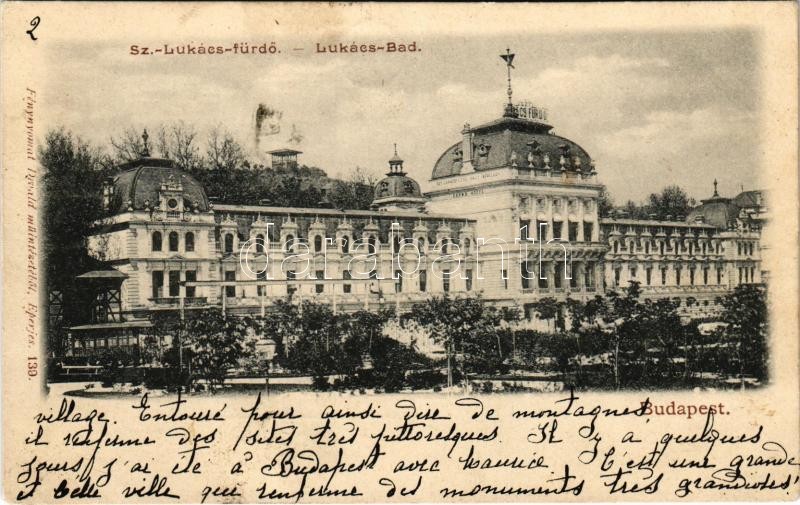 2
Sz.-Lukács-fürdő. — Lukács-Bad.
CS FÜRDŐ
darabanth
Fénynyomat Divald műintézetéből, Eperjes. 139.
Budapest.
village. Entouré pour ainsi dire de montagnes,
il renferme des sites très pittoresques. Il y a quelques
jours j'ai été à Budapest avec Maurice. C'est une grande
et belle ville que renferme des monuments très grandioses!